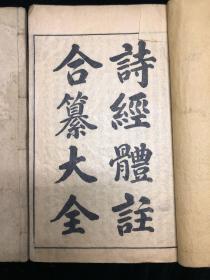 詩經體註
合纂大全